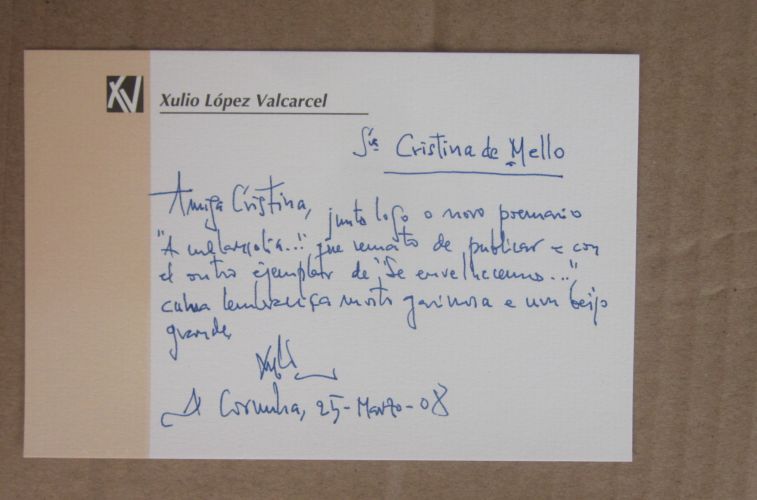 XV
Xulio López Valcarcel
Cristina de Mello
Amiga Cristina, junto logo o novo poemario
"A melancolia..." que remato de publicar e con
el outro ejemplar de "Se envellecemos..."
cunha lembranza moito garimosa e um beijo
grande,
Xulio
A Corunha, 25-Marzo-08